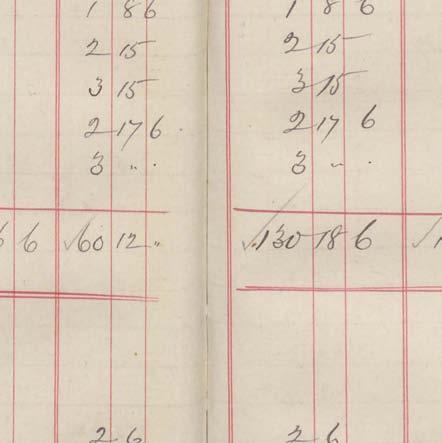 1 8 6 1 8 6
2 15 2 15
3 15 3 15
2 17 6 2 17 6
3 " . 3 " .
6 6 √60 12 " √130 18 6 √1
2 6 2 6